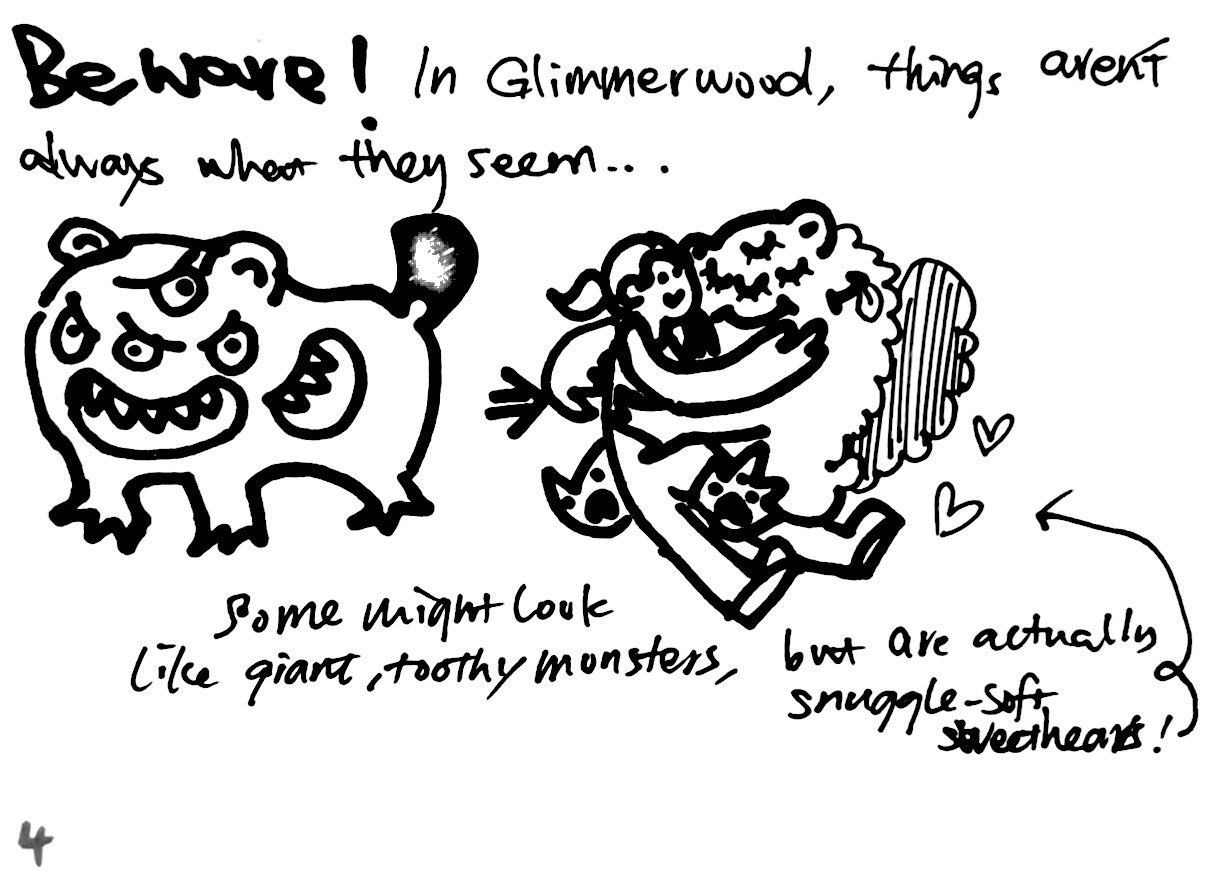 Beware! In Glimmerwood, things aren't
always what they seem...
Some might look
like giant, toothy monsters,
but are actually
snuggle-soft
sweethearts!
4